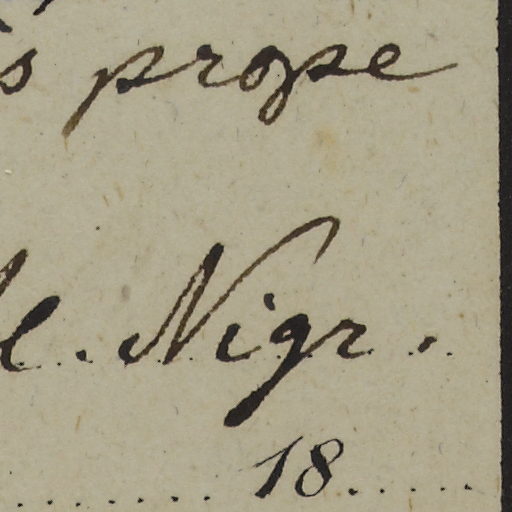 s prope
l. Nigr.
18